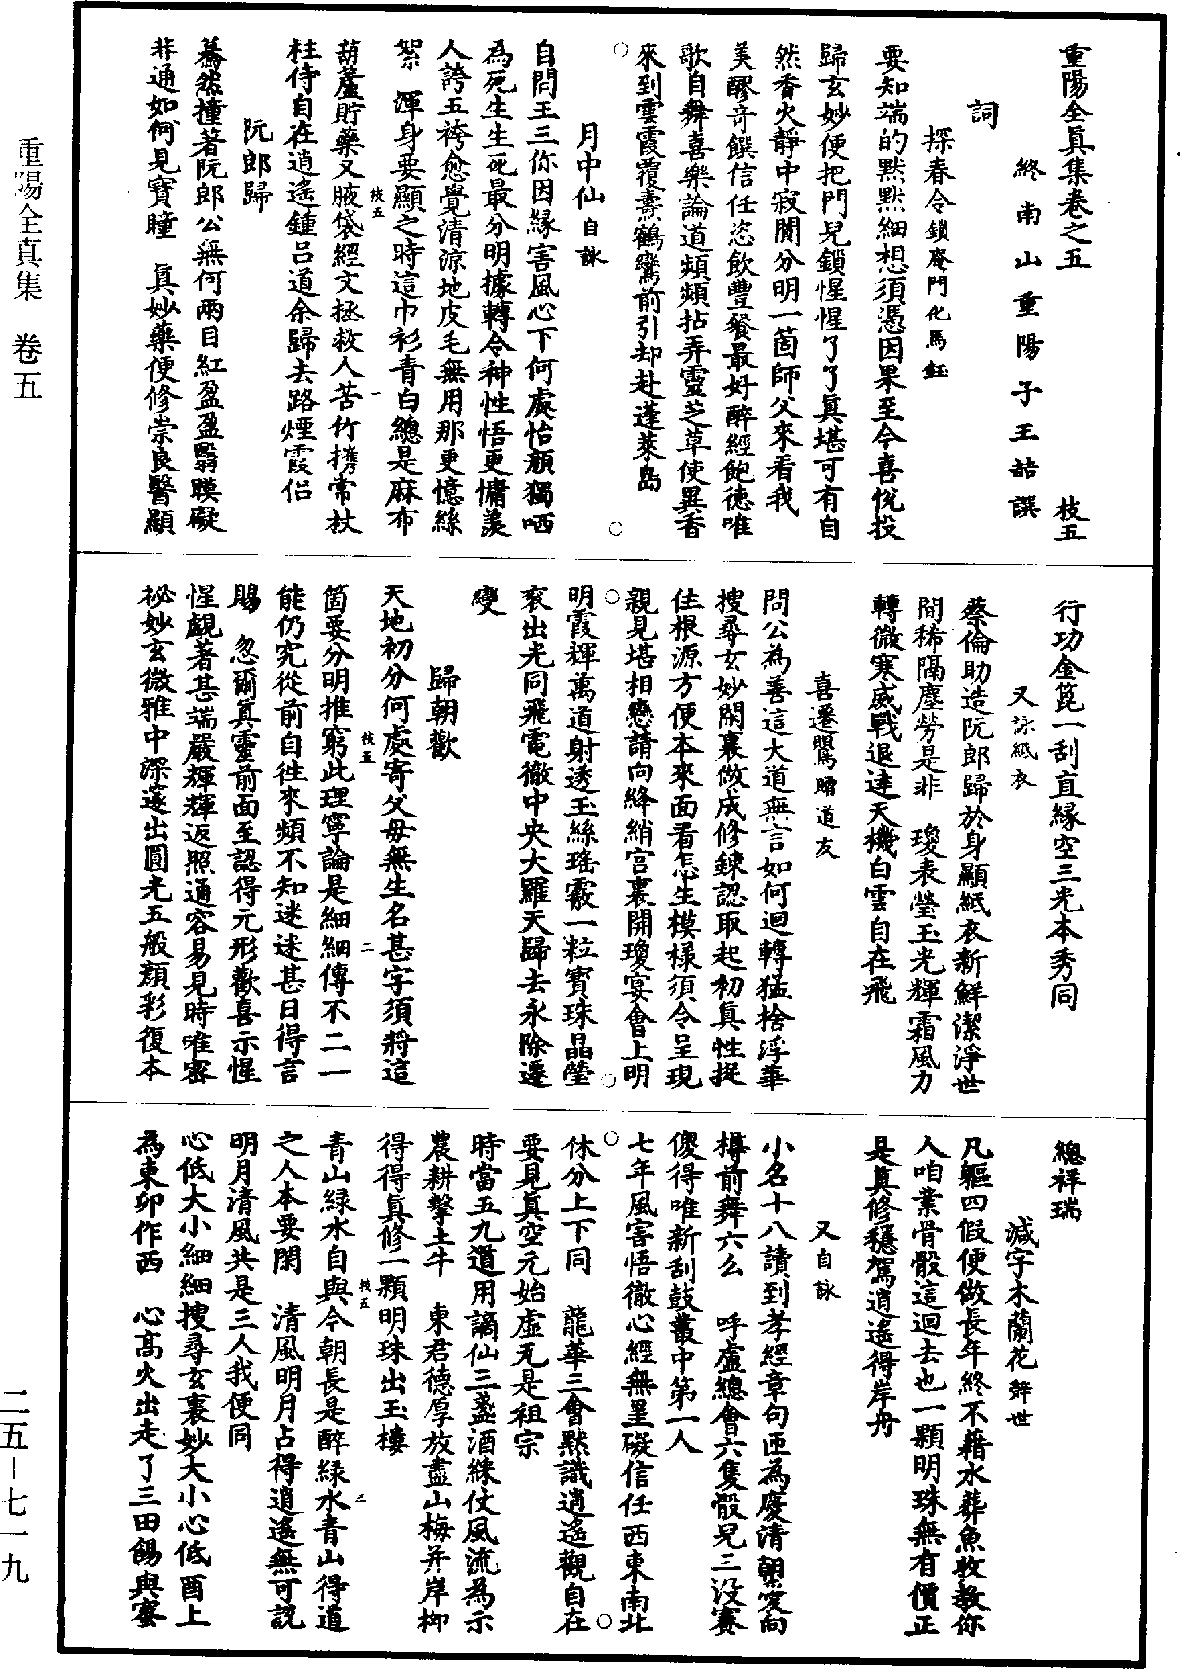 重陽全真集卷之五　枝五
終南山重陽子王嚞譔
詞
探春令鎖庵門化馬鈺
要知端的默默細想須憑因果至今喜悅投
歸玄妙便把門兒鎖惺惺了了真堪可有自
然香火靜中寂闃分明一箇師父來看我
美醪奇饌信任恣飲豐餐最好醉經飽德唯
歌自舞喜樂論道頻頻拈弄靈芝草使異香
來到雲霞覆燾鶴鸞前引却赴蓬萊島
月中仙自詠
自問王三你因緣害風心下何處怡顏獨哂
為死生生死最分明據轉令神性悟更慵羨
人誇五袴愈覺清涼地皮毛無用那更憶絲
絮　渾身要顯之時這巾衫青白總是麻布
枝五　一
葫蘆貯藥又腋袋經文拯救人苦竹攜常杖
柱侍自在逍遙鍾呂道余歸去路煙霞侶
阮郎歸
驀然撞著阮郎公無何兩目紅盈盈翳膜礙
非通如何見寶瞳　真妙藥便修崇良醫顯
行功金篦一刮直緣空三光本秀同
又詠紙衣
蔡倫助造阮郎歸於身顯紙衣新鮮潔淨世
間稀隔塵勞是非　瓊表瑩玉光輝霜風力
轉微寒威戰退達天機白雲自在飛
喜遷鸎贈道友
問公為善這大道無言如何迴轉猛捨浮華
搜尋玄妙閑裏做成修鍊認取起初真性捉
住根源方便本來面看怎生模樣須令呈現
親見堪相戀請向絳綃宮裏開瓊宴會上明
明霞輝萬道射透玉絲瑤霰一粒寶珠晶瑩
衮出光同飛電徹中央大羅天歸去永除遷
變
歸朝歡
天地初分何處寄父母無生名甚字須將這
枝五　二
箇要分明推窮此理寧論是細細傳不二一
能仍究從前自徃來頻不知迷迷甚日得言
賜　忽爾真靈前面至認得元形歡喜示惺
惺覷著甚端嚴輝輝返照通容易見時唯密
祕妙玄微雅中深邃出圓光五般顏彩復本
總祥瑞
減字木蘭花辭世
凡軀四假便做長年終不藉水葬魚收教你
人咱業骨骰這迴去也一顆明珠無有價正
是真修穩駕逍遙得岸舟
又自詠
小名十八讀到孝經章句匝為慶清朝宴向
樽前舞六么　呼盧總會六隻骰兒三沒賽
傻得唯新刮鼓叢中第一人
七年風害悟徹心經無罣礙信任西東南北
休分上下同　龍華三會默識逍遙觀自在
要見真空元始虛无是祖宗
時當五九還用謫仙三盞酒綵仗風流為示
農耕擊土牛　東君德厚放盡山梅并岸柳
得得真修一顆明珠出玉樓
枝五　三
青山緑水自與今朝長是醉緑水青山得道
之人本要閑　清風明月占得逍遙無可說
明月清風共是三人我便同
心低大小細細搜尋玄裏妙大小心低酉上
為東卯作西　心高火出走了三田餳與蜜
重陽全真集　卷五
二五—七一九